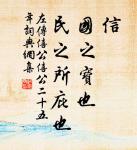 信
國之寶也
民之所庇也
左傳僖公僖公二十五
年詞典網集